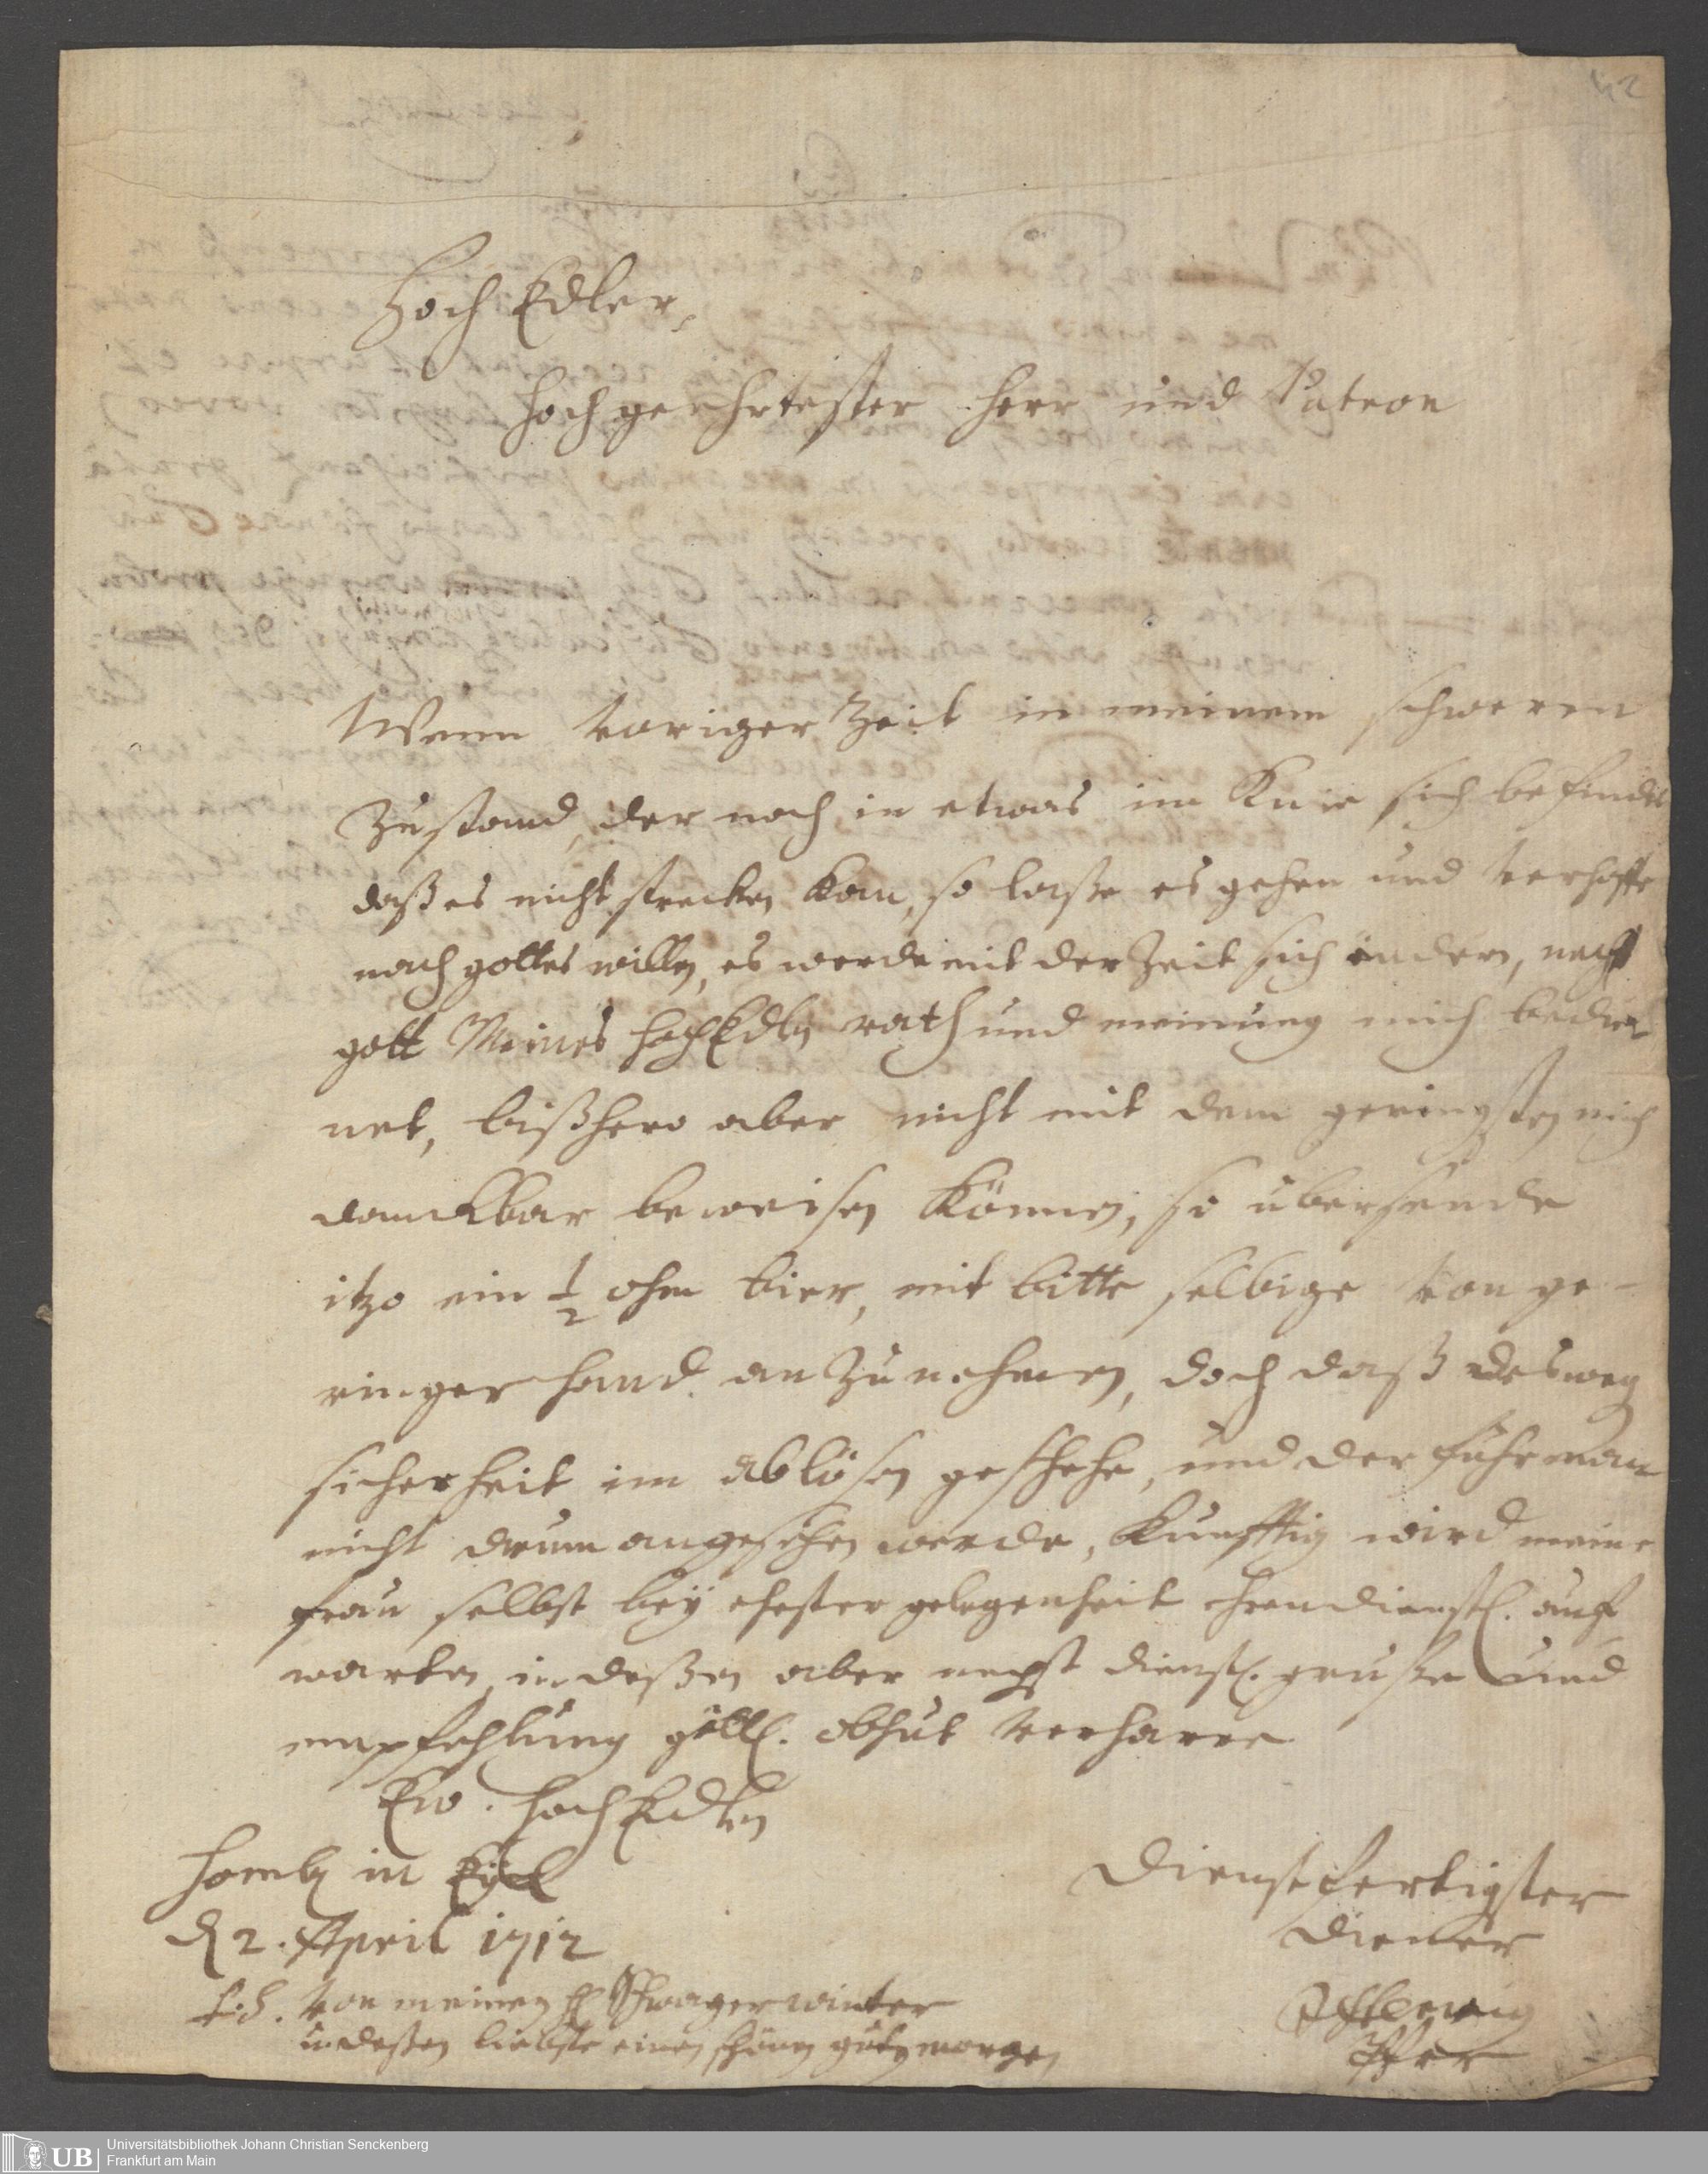 42
Hoch Edler,
hochgeehrtester Herr und Patron
Wenn voriger Zeit in meinem schweren
Zustand, der noch in etwas im Knie sich befindet
daß es nicht strecken kan, so laße es gehen und verhoffe
nach gottes willen, es werde mit der Zeit sich ändern, nechst
gott Meines HochEdlen rath und meinung mich bedie
net, bißhero aber nicht mit dem geringsten mich
danckbar beweisen können, so übersende
itzo ein ½ ohm bier, mit bitte selbige von ge-
ringer hand anzunehmen, doch daß desweg
sicherheit im ablösen geschehe, und der fuhrman
nicht drum angesehen werde, Künfftig wird meine
frau selbst bey ehester gelegenheit ehrendienstl. auf
warten, indeßen aber nechst dienstl. gruße und
empfehlung göttl. obhut verharre
Ew. HochEdlen
Homb in
d 2. April 1712
Dienstfertigster
Diener
von meinen H Schwager winter
u deßen liebste einen schönen guten morgen
Pfer
UB Universitätsbibliothek Johann Christian Senckenberg
Frankfurt am Main